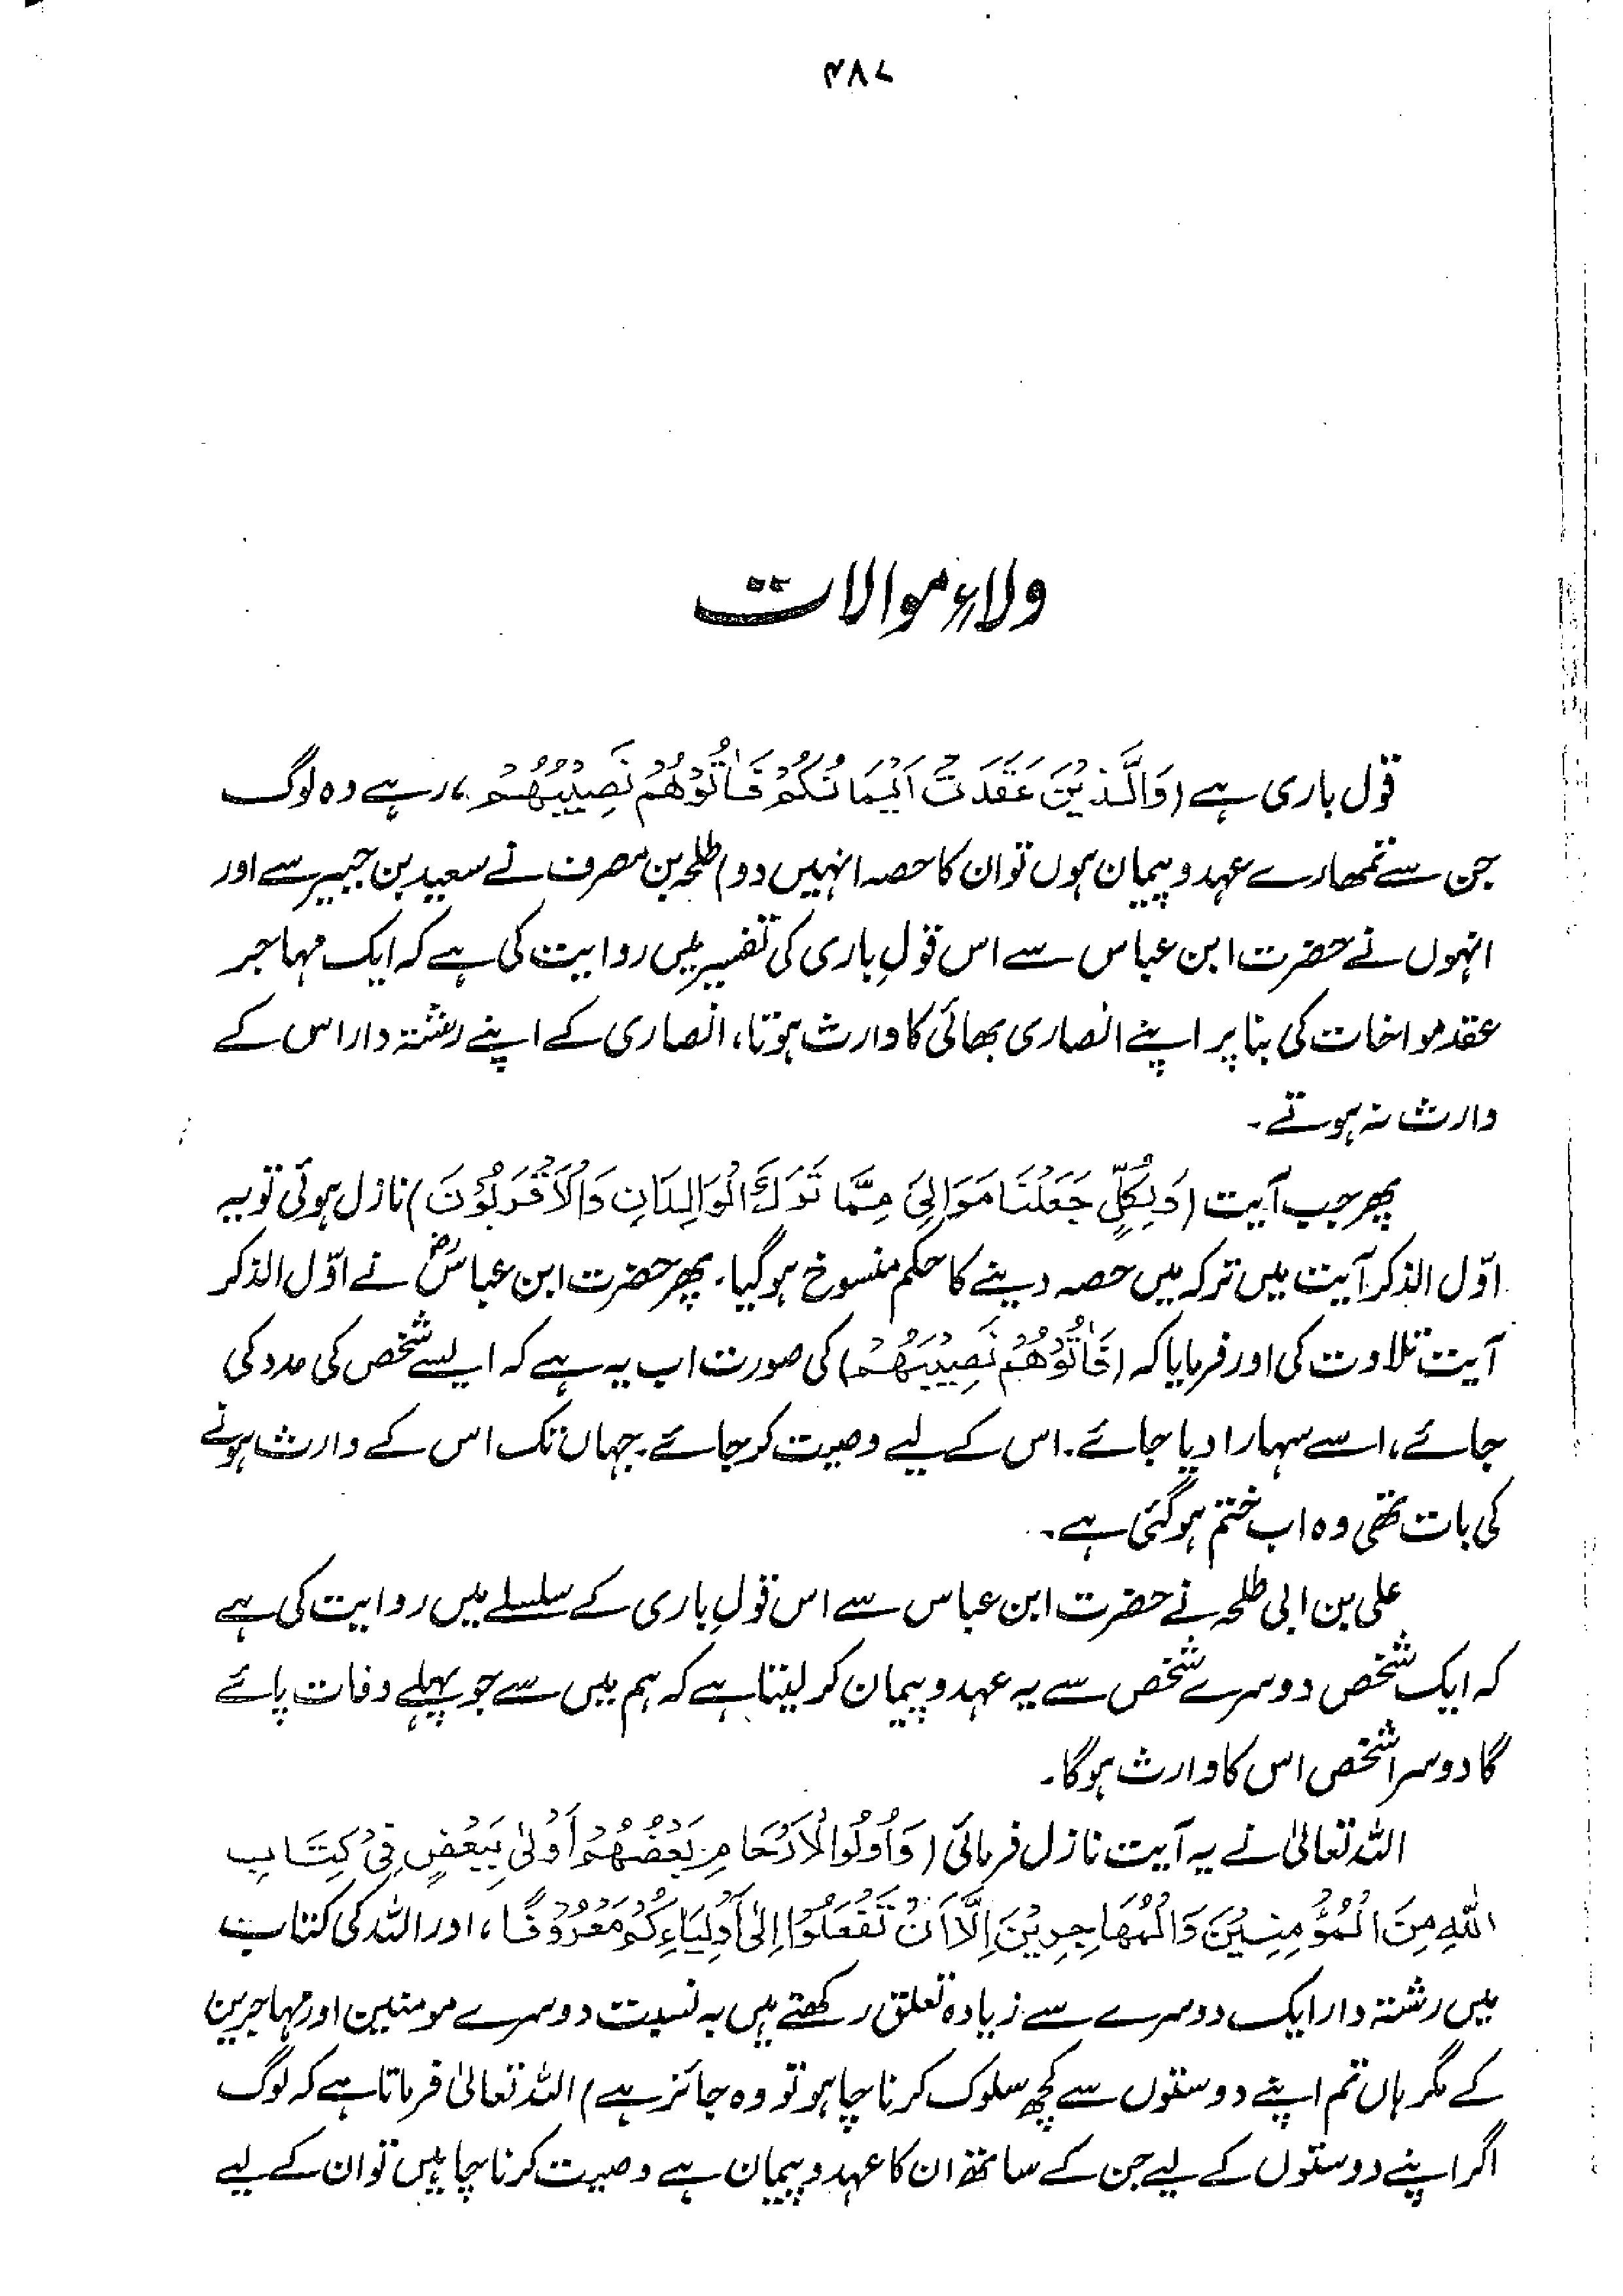 ۴۸۷
ولاءِ موالات
قول باری ہے (وَالَّذِیْنَ عَقَدَتْ اَیْمَانُکُمْ فَاٰتُوْھُمْ نَصِیْبَھُمْ، رہے وہ لوگ
جن سے تمھارے عہد و پیمان ہوں تو ان کا حصہ انہیں دو) طلحہ بن مصرف نے سعید بن جبیر سے اور
انہوں نے حضرت ابن عباس سے اس قولِ باری کی تفسیر میں روایت کی ہے کہ ایک مہاجر
عقد مواخات کی بنا پر اپنے انصاری بھائی کا وارث ہوتا، انصاری کے اپنے رشتہ دار اس کے
وارث نہ ہوتے۔
پھر جب آیت (وَلِکُلٍّ جَعَلْنَا مَوَالِیَ مِمَّا تَرَکَ الْوَالِدَانِ وَالْاَقْرَبُوْنَ) نازل ہوئی تو یہ
اوّل الذکر آیت میں ترکہ میں حصہ دینے کا حکم منسوخ ہوگیا۔ پھر حضرت ابن عباسؓ نے اوّل الذکر
آیت تلاوت کی اور فرمایا کہ (فَاٰتُوْھُمْ نَصِیْبَھُمْ) کی صورت اب یہ ہے کہ ایسے شخص کی مدد کی
جائے، اسے سہارا دیا جائے۔ اس کے لیے وصیت کر جائے۔ جہاں تک اس کے وارث ہونے
کی بات تھی وہ اب ختم ہوگئی ہے۔
علی بن ابی طلحہ نے حضرت ابن عباس سے اس قولِ باری کے سلسلے میں روایت کی ہے
کہ ایک شخص دوسرے شخص سے یہ عہد و پیمان کر لیتا ہے کہ ہم میں سے جو پہلے وفات پائے
گا دوسرا شخص اس کا وارث ہوگا۔
اللہ تعالیٰ نے یہ آیت نازل فرمائی (وَاُولُوا الْاَرْحَامِ بَعْضُھُمْ اَوْلٰی بِبَعْضٍ فِیْ کِتَابِ
اللّٰہِ مِنَ الْمُؤْمِنِیْنَ وَالْمُھَاجِرِیْنَ اِلَّا اَنْ تَفْعَلُوْا اِلٰی اَوْلِیَاءِکُمْ مَعْرُوْفًا، اور اللہ کی کتاب
میں رشتہ دار ایک دوسرے سے زیادہ تعلق رکھتے ہیں بہ نسبت دوسرے مومنین اور مہاجرین
کے مگر ہاں تم اپنے دوستوں سے کچھ سلوک کرنا چاہو تو وہ جائز ہے) اللہ تعالیٰ فرماتا ہے کہ لوگ
اگر اپنے دوستوں کے لیے جن کے ساتھ ان کا عہد و پیمان ہے وصیت کرنا چاہیں تو ان کے لیے